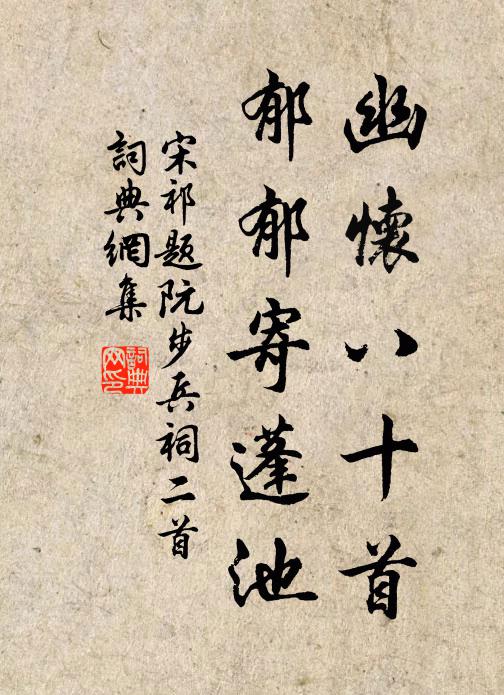 幽懷八十首
郁郁寄蓬池
宋祁題阮步兵祠二首
詞典網集
詞典网印